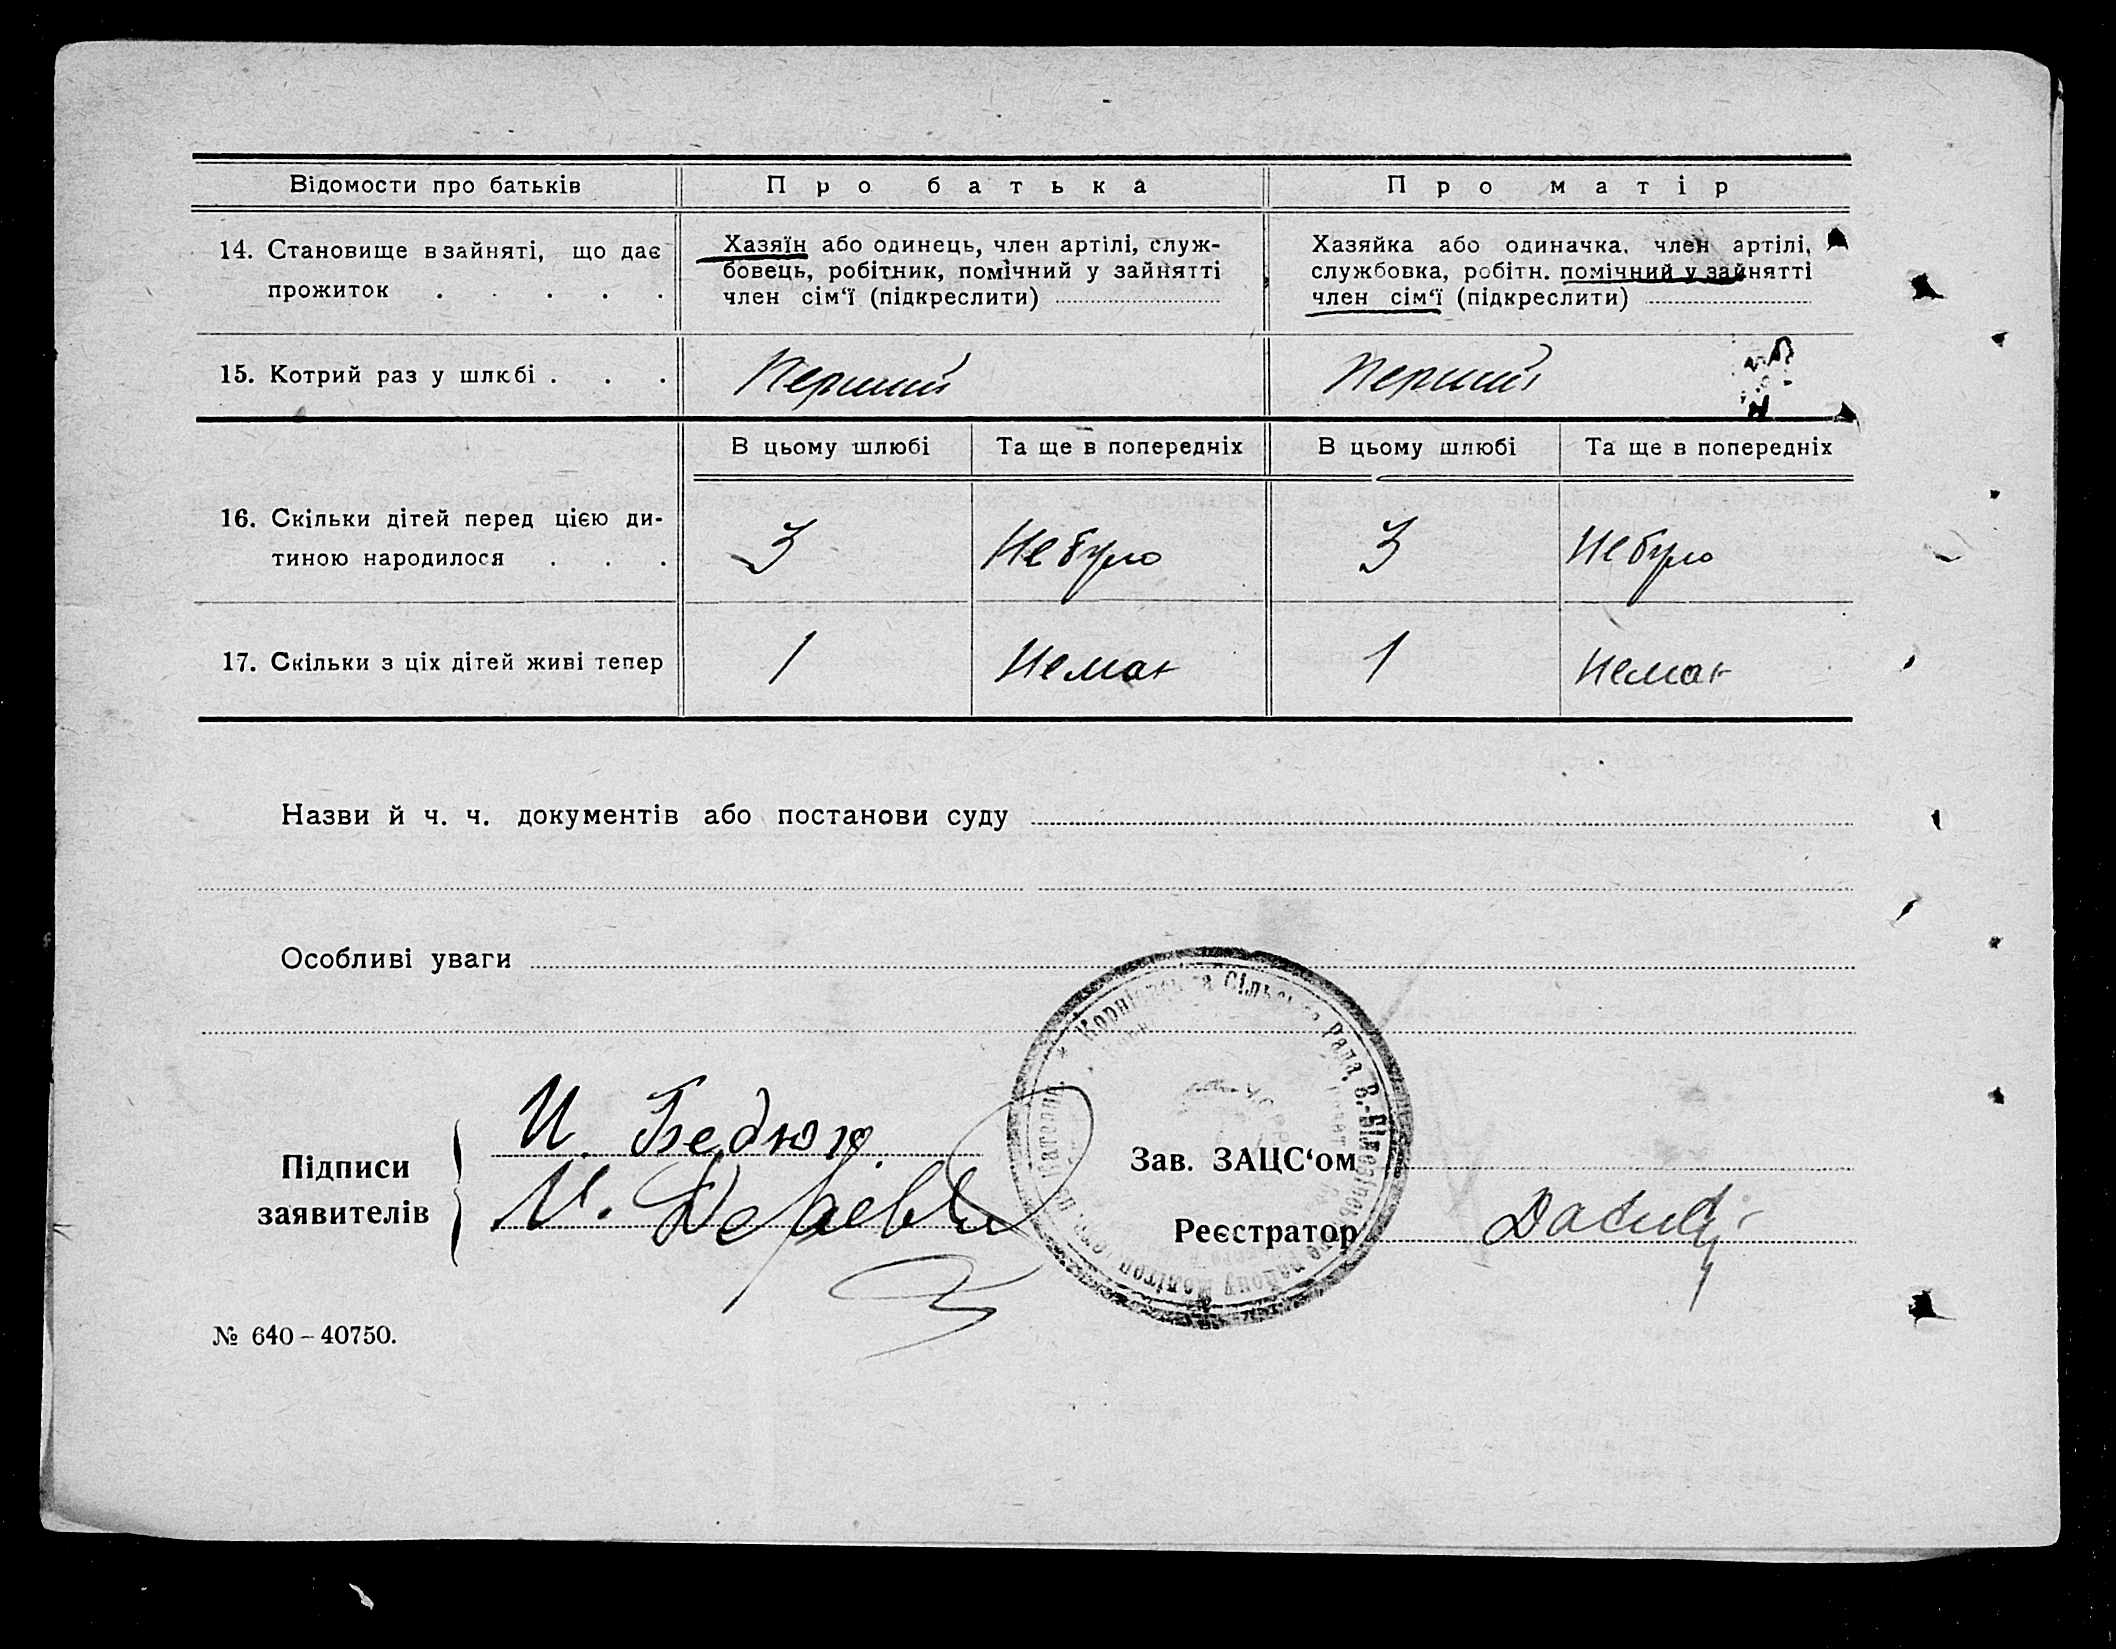 Відомости про батьків
Про батька
Про матір
14. Становище в зайняті, що дає
прожиток . . . . .
Хазяїн або одинець, член артілі, служ-
бовець, робітник, помічний у зайнятті
член сім'ї (підкреслити)
Хазяйка або одиначка, член артілі,
службовка, робітн. помічний у зайнятті
член сім'ї (підкреслити)
15. Котрий раз у шлюбі . . .
Перший
Перший
В цьому шлюбі
Та ще в попередніх
В цьому шлюбі
Та ще в попередніх
16. Скільки дітей перед цією ди-
тиною народилося . . .
3
Небуло
3
Небуло
17. Скільки з ціх дітей живі тепер
1
Немає
1
Немає
Назви й ч. ч. документів або постанови суду
Особливі уваги
Сільська Рада, В.-Білозірського району Меліто
Підписи
заявителів
И. Бедюх
И.
Зав. ЗАЦС'ом
Реєстратор
№ 640-40750.